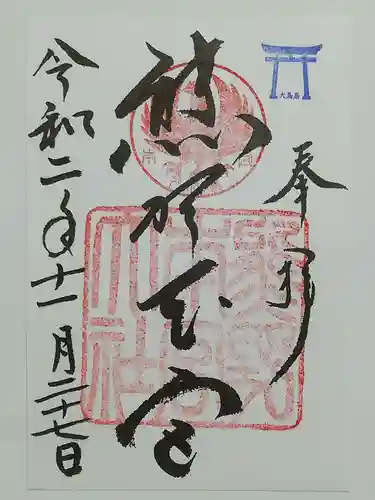 奉拝
熊野本宮
令和二年十一月二十七日
大鳥居